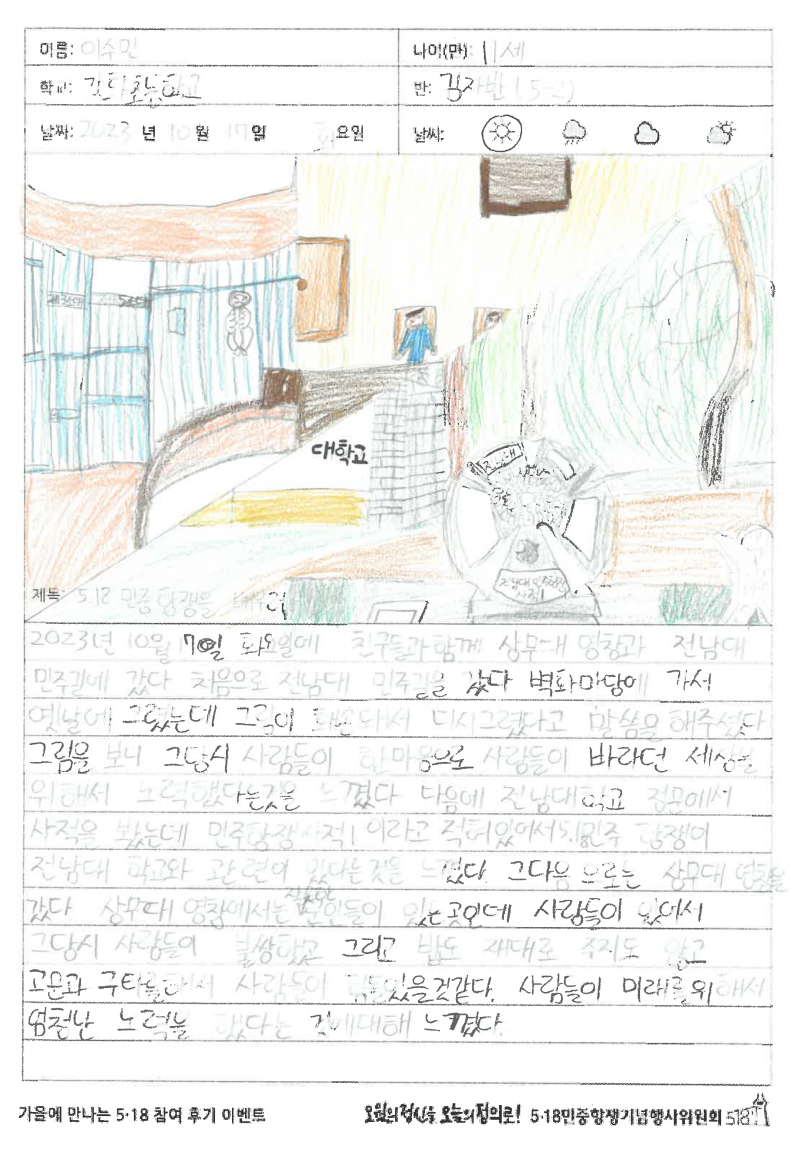 이름: 이수민
나이(만): 11세
학교: 초등학교
반: (5-2)
날짜: 2023 년 10 월 17 일 화 요일
날씨:
대학교
제목: 5.18 민중 항쟁을 배우러
2023년 10월 17일 화요일에 친구들과 함께 상무대 영창과 전남대
민주길에 갔다 처음으로 전남대 민주길을 갔다 벽화마당에 가서
옛날에 그렸는데 그림이 훼손돼서 다시그렸다고 말씀을 해주셨다
그림을 보니 그당시 사람들이 한마음으로 사람들이 바라던 세상을
위해서 노력했다는것을 느꼈다 다음에 전남대학교 정문에서
사적을 봤는데 민주항쟁 사적1 이라고 적혀있어서 5.18민주 항쟁이
전남대 학교와 관련이 있다는것을 느꼈다. 그다음 으로는 상무대 영창을
갔다 상무대 영창에서는 군인들이 있는 곳인데 사람들이 있어서
그당시 사람들이 불쌍했고 그리고 밥도 제대로 주지도 않고
고문과 구타를해서 사람들이 힘들었을것같다. 사람들이 미래를위해서
엄청난 노력을 했다는 것에대해 느꼈다.
가을에 만나는 5·18 참여 후기 이벤트
오월의 정신을 오늘의 정의로! 5·18민중항쟁기념행사위원회 518